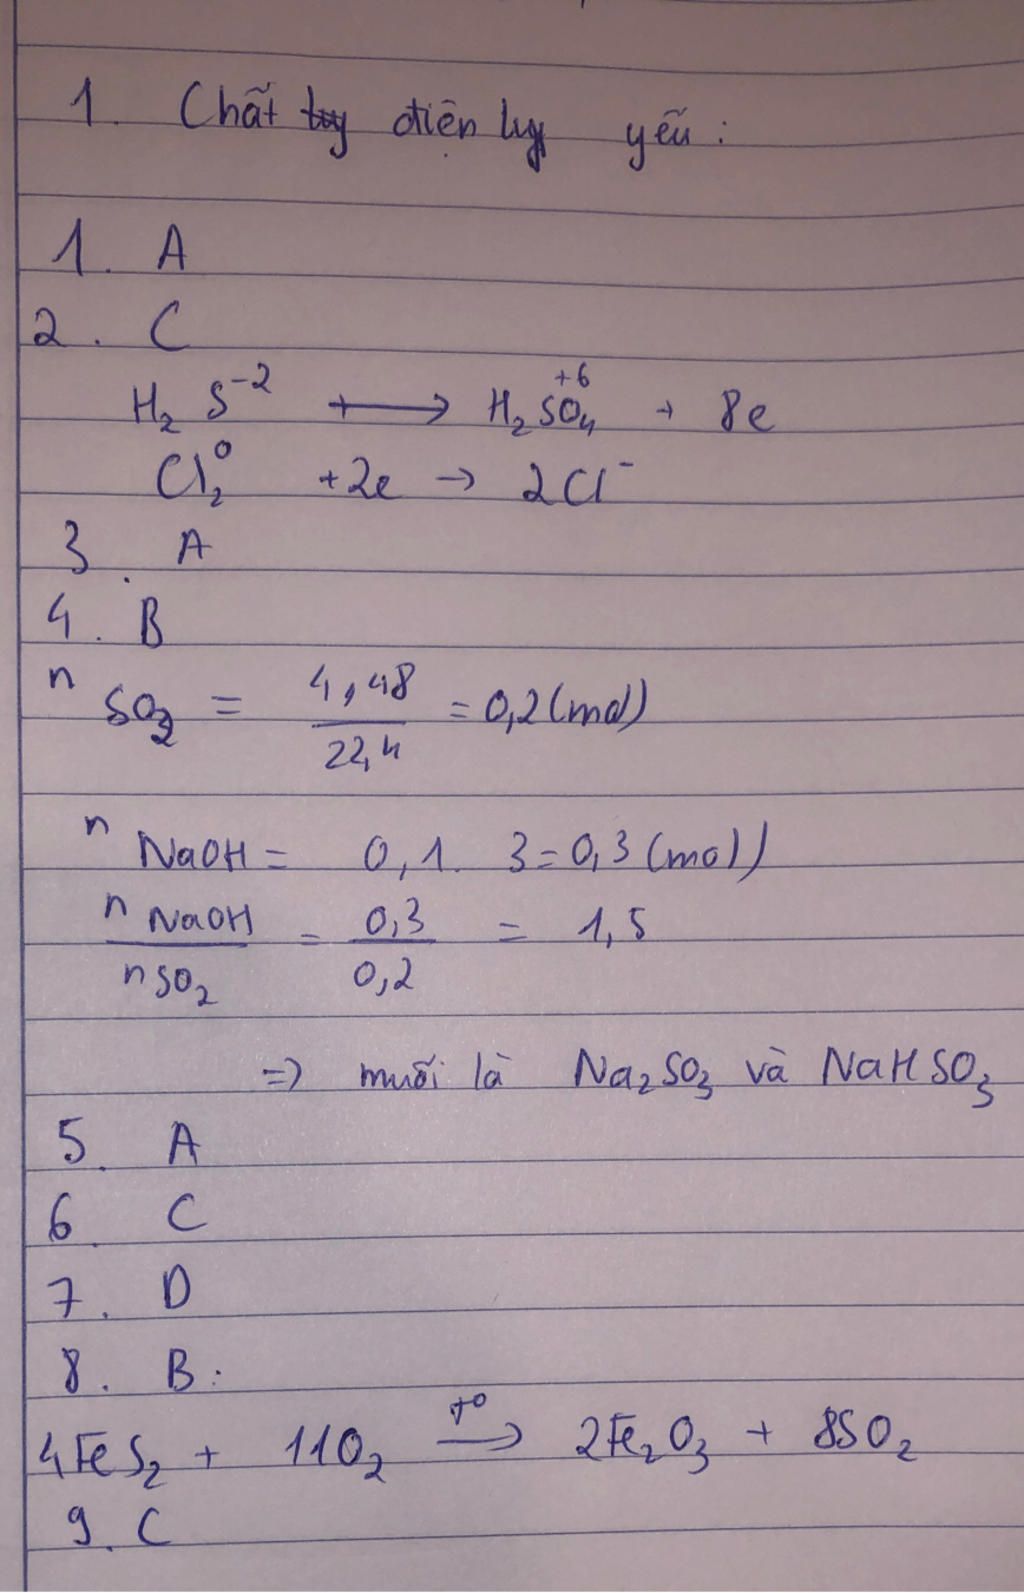 1. Chất điện ly yếu:
1. A
2. C
H₂ S⁻² ⟼ H₂S⁺⁶O₄ + 8e
Cl₂⁰ +2e → 2Cl⁻
3. A
4. B
n SO₂ = 4,48/22,4 = 0,2 (mol)
n NaOH = 0,1. 3 = 0,3 (mol)
n NaOH/n SO₂ = 0,3/0,2 = 1,5
=> muối là Na₂SO₃ và NaHSO₃
5. A
6. C
7. D
8. B:
4FeS₂ + 11O₂ →(t⁰) 2Fe₂O₃ + 8SO₂
9. C